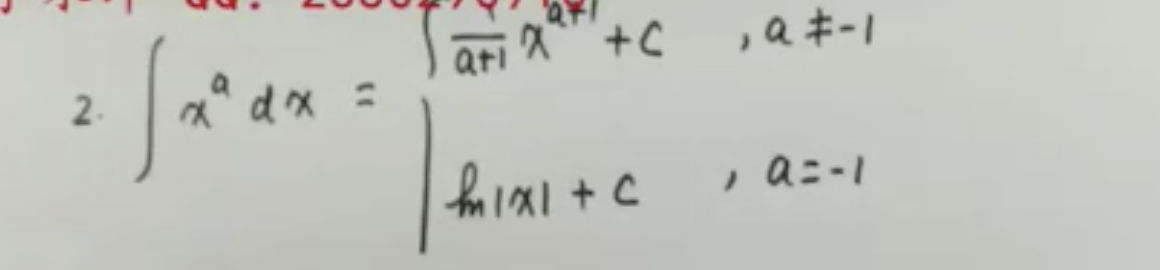 2. ∫ x^a dx = { 1/(a+1) x^(a+1) + C , a ≠ -1
ln|x| + C , a = -1